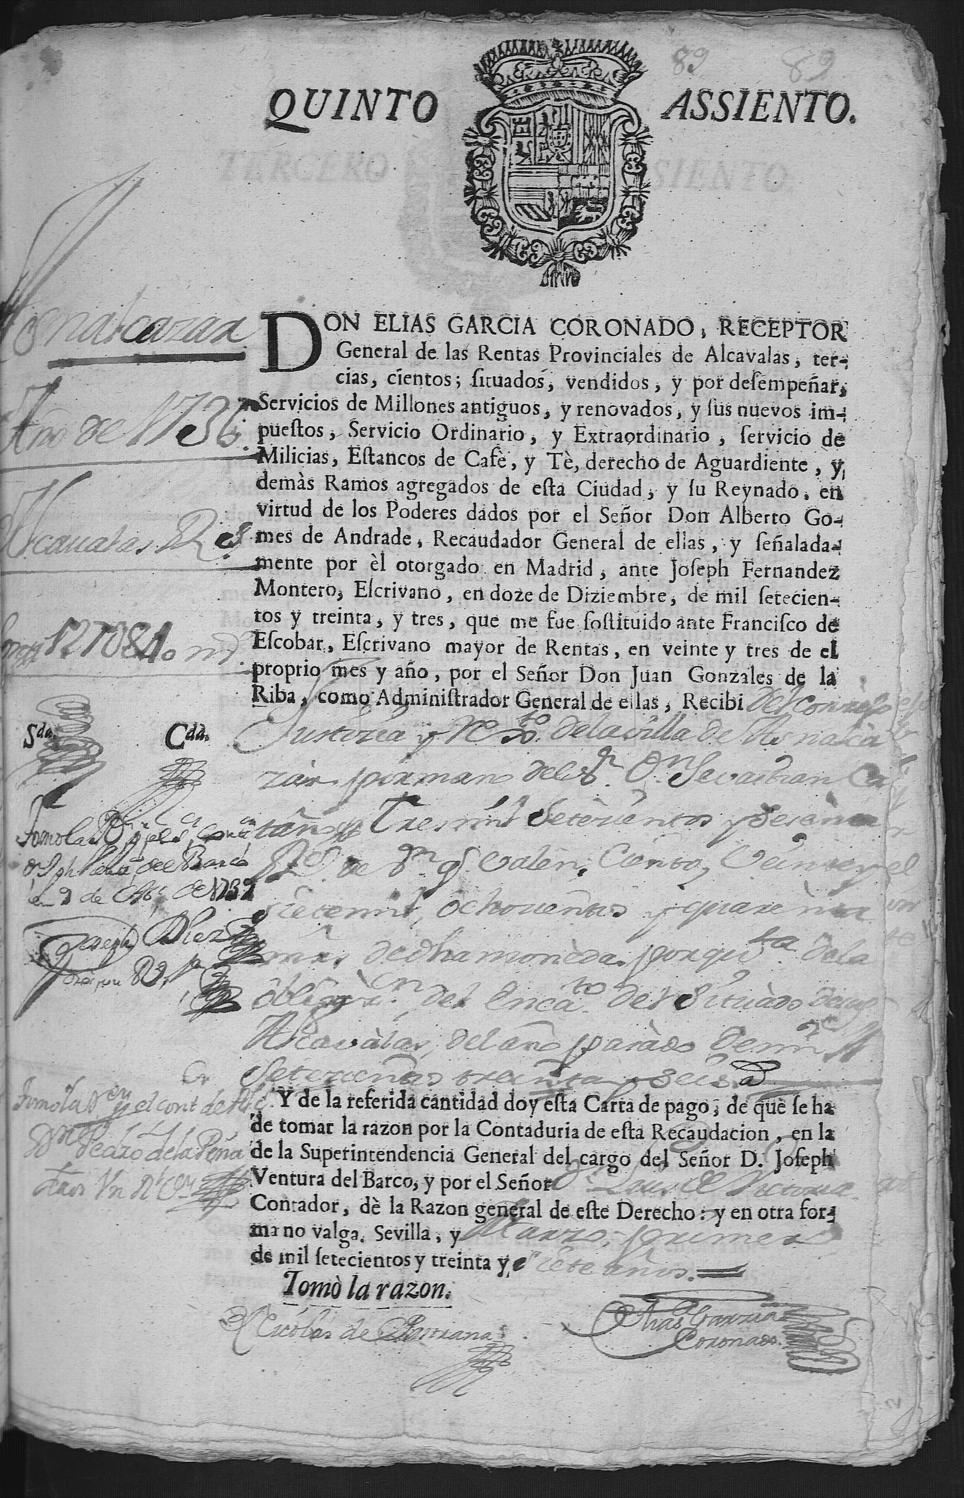 89 89
QUINTO ASSIENTO.
Aznalcazar
Año de 1736
Alcaualas R.s
127084
S.da C.da
DON ELIAS GARCIA CORONADO, RECEPTOR
General de las Rentas Provinciales de Alcavalas, ter-
cias, cientos; situados, vendidos, y por desempeñar,
Servicios de Millones antiguos, y renovados, y sus nuevos im-
puestos, Servicio Ordinario, y Extraordinario, servicio de
Milicias, Estancos de Cafè, y Tè, derecho de Aguardiente, y
demàs Ramos agregados de esta Ciudad, y su Reynado, en
virtud de los Poderes dados por el Señor Don Alberto Go-
mes de Andrade, Recaudador General de ellas, y señalada-
mente por èl otorgado en Madrid, ante Joseph Fernandez
Montero, Escrivano, en doze de Diziembre, de mil setecien-
tos y treinta, y tres, que me fue sostituido ante Francisco de
Escobar, Escrivano mayor de Rentas, en veinte y tres de el
proprio mes y año, por el Señor Don Juan Gonzales de la
Riba, como Administrador General de ellas, Recibi del conzejo
Justizia y Rex.to de la villa de Aznalca
zar por mano del S.r D.n Sevastian Ca
taño Tres mil Setezientos y sesenta
R.s de V.n q valen Ciento, Veinte y
siete mil, ochozentos y quarenta
mrs. de dha moneda, por q.ta de la
obligaz.on del Encav.to del Situado de
Alcavalas, del año pasado de mil
Setezientos treinta y seis
Y de la referida cantidad doy esta Carta de pago; de que se ha
de tomar la razon por la Contaduria de esta Recaudacion, en la
de la Superintendencia General del cargo del Señor D. Joseph
Ventura del Barco, y por el Señor D.n Luis de Victoria
Contador, dè la Razon general de este Derecho: y en otra for-
ma no valga. Sevilla, y Marzo, primero
de mil setecientos y treinta y siete años.
Tomò la razon.
Nicolas de Pastrana
Elias Garzia
Coronado.
Tomo la R.on
del Barco
de 1737
Joseph
Tomo la R.on el cont.
D.n Pedro de la Peña